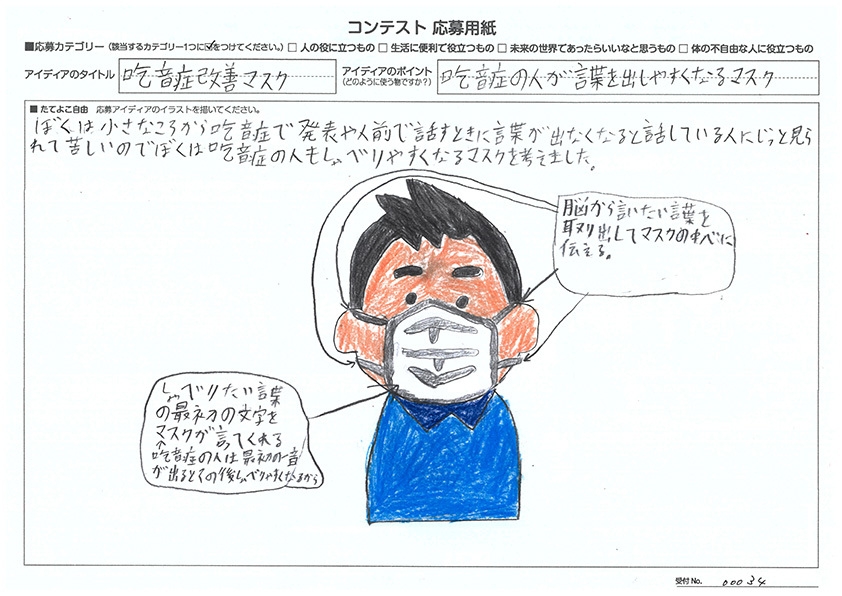 コンテスト 応募用紙
■応募カテゴリー (該当するカテゴリー1つに☑をつけてください。) □ 人の役に立つもの □ 生活に便利で役立つもの □ 未来の世界であったらいいなと思うもの □ 体の不自由な人に役立つもの
アイディアのタイトル 吃音症改善マスク
アイディアのポイント (どのように使う物ですか?) 吃音症の人が言葉を出しやすくなるマスク
■たてよこ自由 応募アイディアのイラストを描いてください。
ぼくは小さなころから吃音症で発表や人前で話すときに言葉が出なくなると話している人にじっと見ら
れて苦しいのでぼくは吃音症の人もしゃべりやすくなるマスクを考えました。
脳から言いたい言葉を
取り出してマスクの中べに
伝える。
しゃべりたい言葉
の最初の文字を
マスクが言ってくれる
吃音症の人は最初の音
が出るとその後しゃべりやすくなるから
受付No. 00034